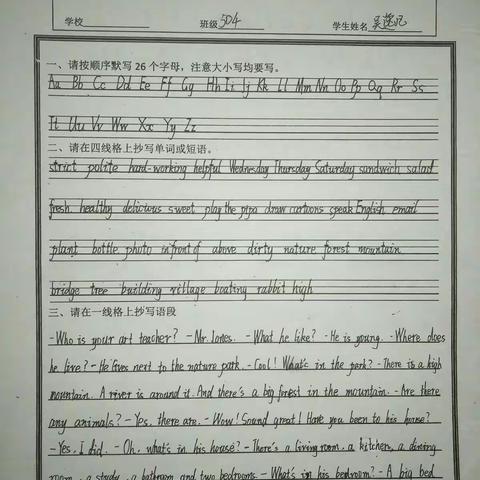 学校 班级 504 学生姓名 吴
一、请按顺序默写 26 个字母，注意大小写均要写。
Aa Bb Cc Dd Ee Ff Gg Hh Ii Jj Kk Ll Mm Nn Oo Pp Qq Rr Ss
Tt Uu Vv Ww Xx Yy Zz
二、请在四线格上抄写单词或短语。
strict polite hard-working helpful Wednesday Thursday Saturday sandwich salad
fresh healthy delicious sweet play the pipa draw cartoons speak English email
plant bottle photo in front of above dirty nature forest mountain
bridge tree building village boating rabbit high
三、请在一线格上抄写语段
-Who is your art teacher? -Mr. Jones. -What he like? -He is young. -Where does
he live? -He lives next to the nature park. -Cool! What's in the park? -There is a high
mountain. A river is around it. And there's a big forest in the mountain. -Are there
any animals? -Yes, there are. -Wow! Sound great! Have you been to his house?
-Yes, I did. -Oh, what's in his house? -There's a living room, a kitchen, a dining
room, a study, a bathroom and two bedrooms. -What's in his bedroom? -A big bed